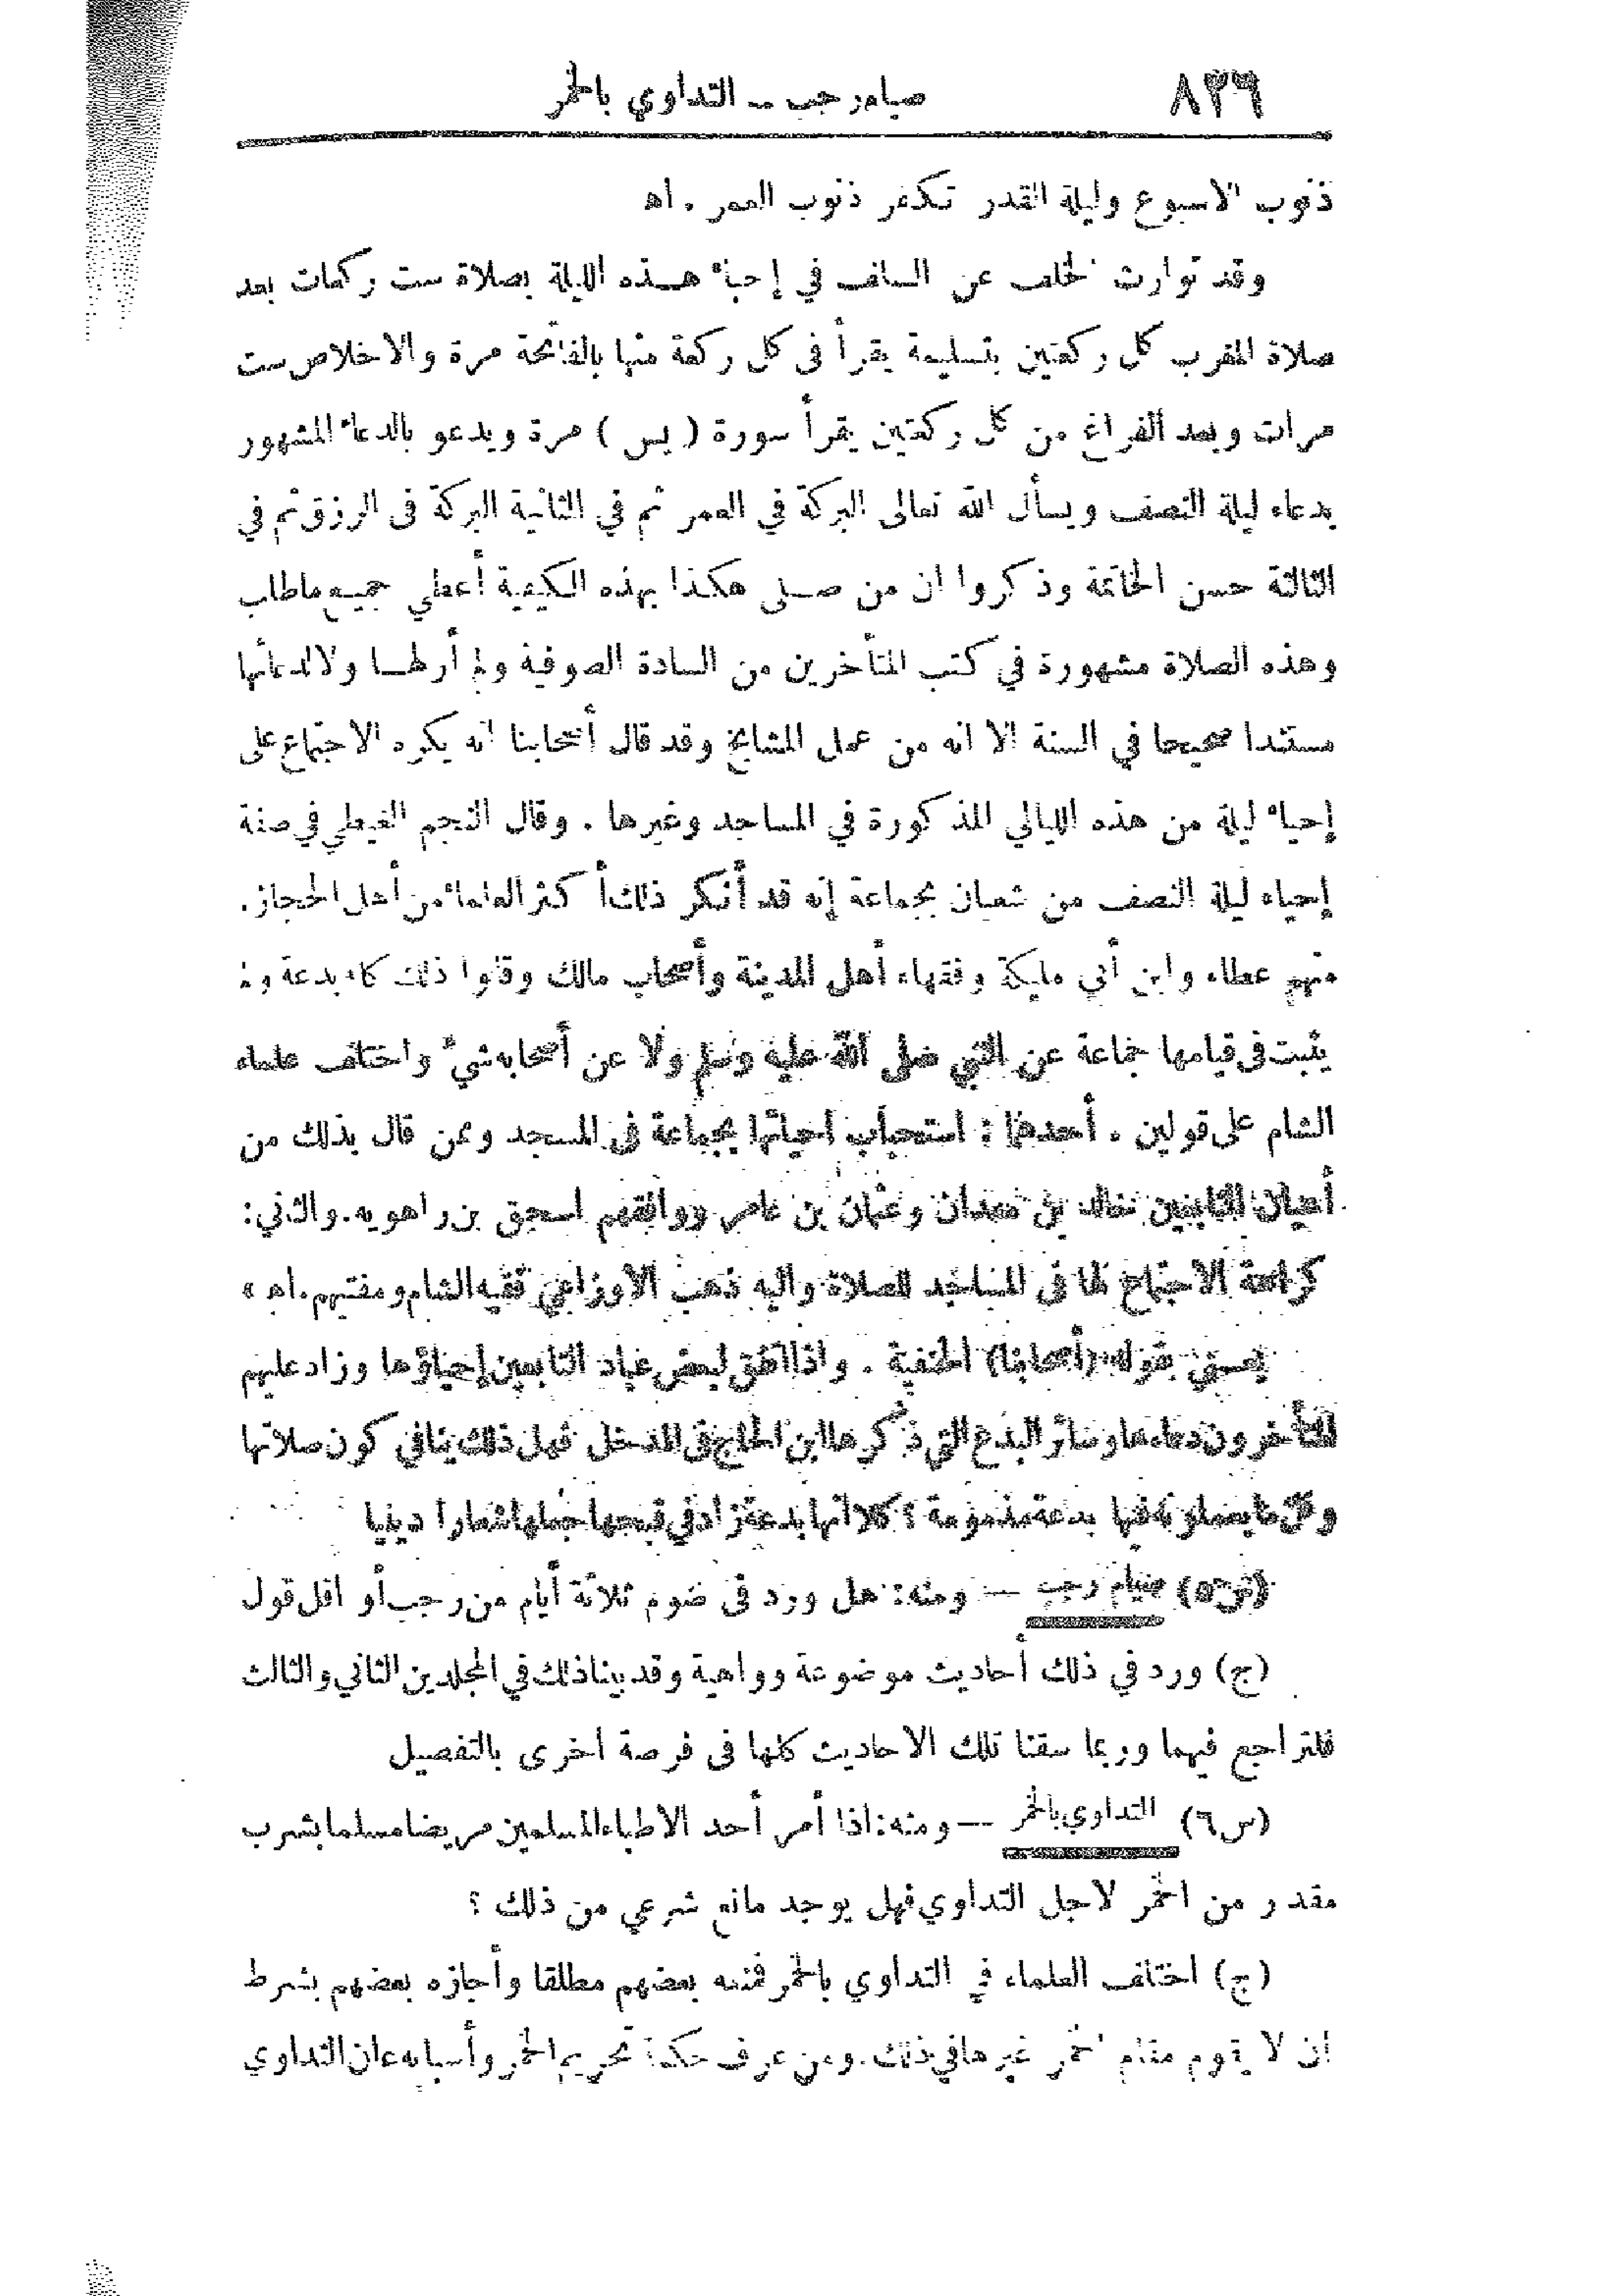 ٨٣٦ صيام رجب -- التداوي بالخمر
ذنوب الاسبوع وليلة القدر تكفر ذنوب العمر . اه
وقد توارث الخلف عن السلف في إحياء هذه الليلة بصلاة ست ركعات بعد
صلاة المغرب كل ركعتين بتسليمة يقرأ في كل ركعة منها بالفاتحة مرة والاخلاص ست
مرات وبعد الفراغ من كل ركعتين يقرأ سورة ( يس ) مرة ويدعو بالدعاء المشهور
بدعاء ليلة النصف ويسأل الله تعالى البركة في العمر ثم في الثانية البركة في الرزق ثم في
الثالثة حسن الخاتمة وذكروا ان من صلى هكذا بهذه الكيفية أعطي جميع ماطلب
وهذه الصلاة مشهورة في كتب المتأخرين من السادة الصوفية ولم أر لها ولا لدعائها
مستندا صحيحا في السنة الا انه من عمل المشايخ وقد قال أصحابنا انه يكره الاجتماع على
إحياء ليلة من هذه الليالي المذكورة في المساجد وغيرها . وقال النجم الغيطي في صفة
إحياء ليلة النصف من شعبان بجماعة إنه قد أنكر ذلك أكثر العلماء من أهل الحجاز .
منهم عطاء وابن أبي مليكة وفقهاء أهل المدينة وأصحاب مالك وقالوا ذلك كله بدعة ولم
يثبت في قيامها جماعة عن النبي صلى الله عليه وسلم ولا عن أصحابه شيء واختلف علماء
الشام على قولين . أحدهما : استحباب احيائها بجماعة في المسجد وممن قال بذلك من
أعيان التابعين خالد بن معدان وعثمان بن عامر ووافقهم اسحق بن راهويه . والثاني :
كراهة الاجتماع لها في المساجد للصلاة واليه ذهب الاوزاعي فقيه الشام ومفتيهم . اه »
يعني بقوله (أصحابنا) الحنفية . واذا اتفق لبعض عباد التابعين إحياؤها وزاد عليهم
المتأخرون دعاءها وسائر البدع التي ذكرها ابن الحاج في المدخل فهل ذلك ينافي كون صلاتها
وكل ما يعملونه فيها بدعة مذمومة ؟ كلا انها بدعة زاد في قبحها جعلها شعارا دينيا
(س٥) صيام رجب — ومنه : هل ورد في صوم ثلاثة أيام من رجب أو اقل قول
(ج) ورد في ذلك أحاديث موضوعة وواهية وقد بينا ذلك في المجلدين الثاني والثالث
فلتراجع فيهما وربما سقنا تلك الاحاديث كلها في فرصة اخرى بالتفصيل
(س٦) التداوي بالخمر — ومنه : اذا أمر أحد الاطباء المسلمين مريضا مسلما بشرب
مقدار من الخمر لاجل التداوي فهل يوجد مانع شرعي من ذلك ؟
(ج) اختلف العلماء في التداوي بالخمر فمنعه بعضهم مطلقا وأجازه بعضهم بشرط
ان لا يقوم مقام الخمر غيرها في ذلك . ومن عرف حكمة تحريم الخمر وأسبابه علم ان التداوي